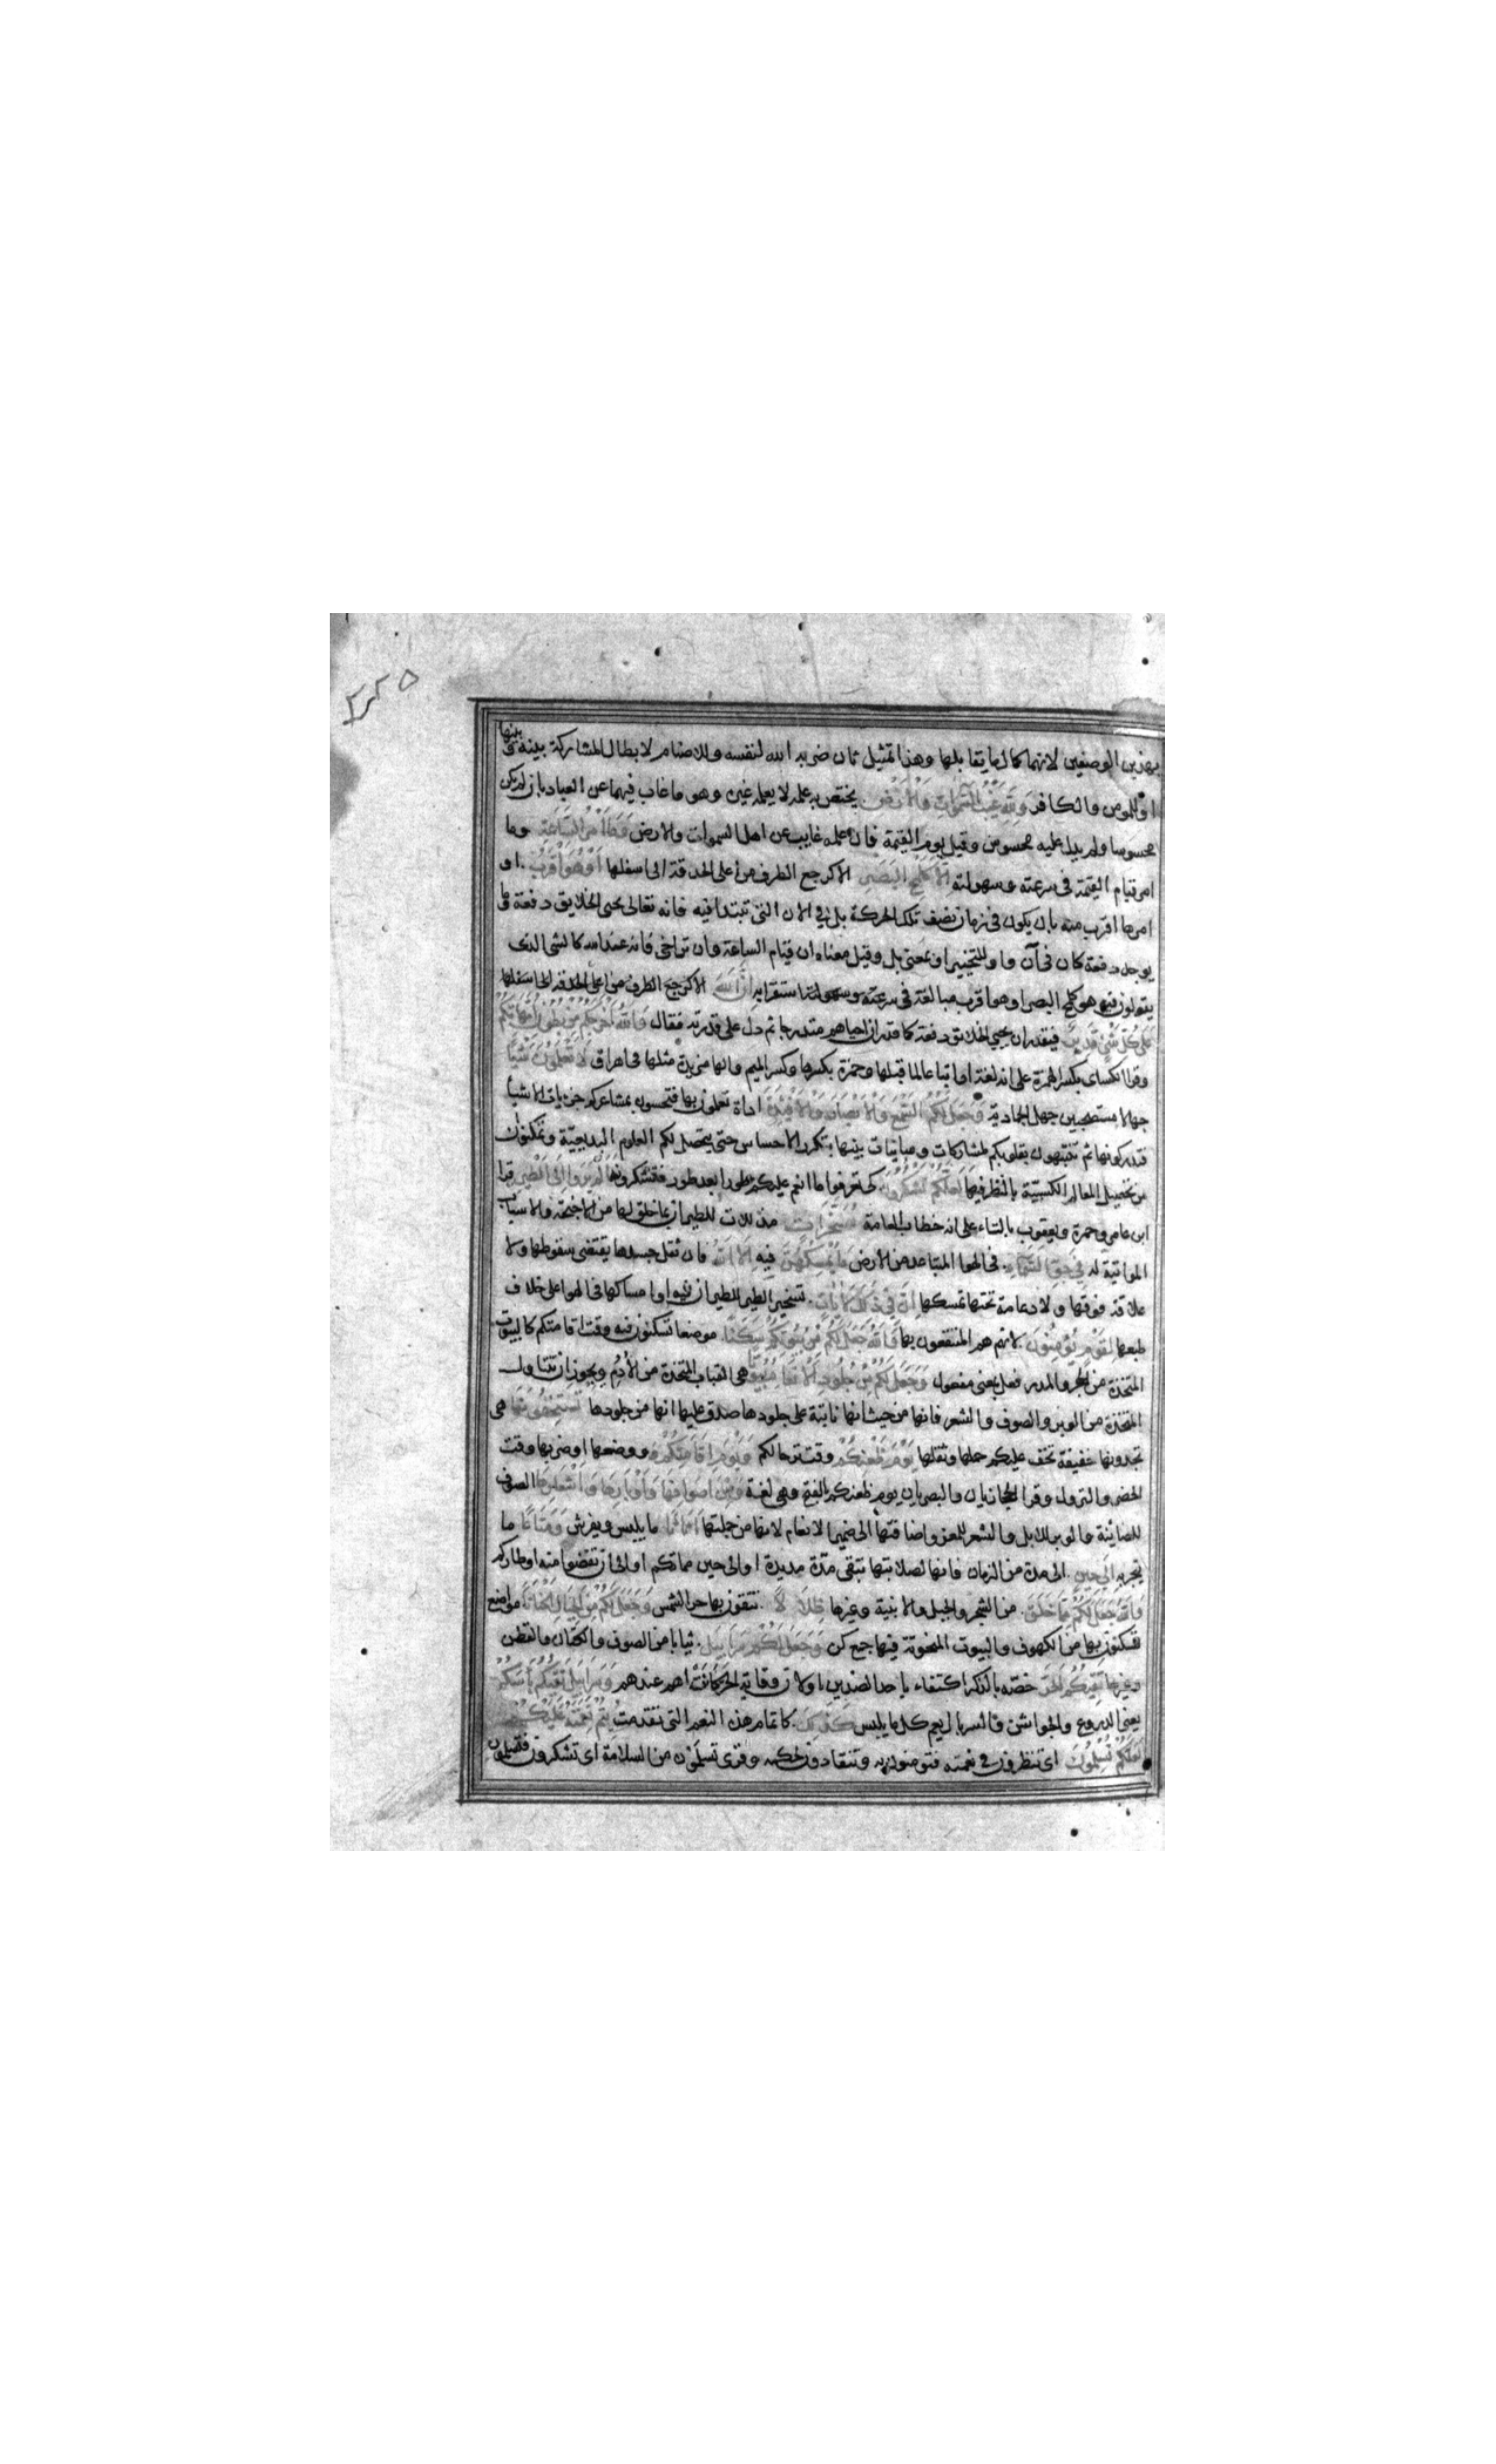 ۳۲۵
بهذين الوصفين لانهما كمال ما يقابلها وهذا تمثيل ثان ضربه الله لنفسه وللاصنام لابطال المشاركة بينه وبينها
او للمومن والكافر وَلِلّهِ غَيْبُ السَّمٰوَاتِ وَالْاَرْضِ يختص به علمه لا يعلمه غيره وهو ما غاب فيهما عن العباد بان لم يكن
محسوسا ولم يدل عليه محسوس وقيل يوم القيمة فان علمه غايب عن اهل السموات والارض وَمَا اَمْرُ السَّاعَةِ وما
امر قيام القيمة فى سرعته وسهولته اِلَّا كَلَمْحِ الْبَصَرِ الا كرجع الطرف من اعلى الحدقة الى اسفلها اَوْ هُوَ اَقْرَبُ او
امرها اقرب منه بان يكون فى زمان نصف تلك الحركة بل فى الان التى تبتدا فيه فانه تعالى يحيى الخلايق دفعة وما
يوجد دفعة كان فى آن واو للتخيير او بمعنى بل وقيل معناه ان قيام الساعة وان تراخى فانه عند الله كالشى الذى
يقولون فيه هو كلمح البصر او هو اقرب مبالغة فى سرعته وسهولته استقرابه اِنَّ اللهَ الا كرجع الطرف من اعلى الحدقة الى اسفلها
عَلٰى كُلِّ شَيْءٍ قَدِيرٌ فيقدر ان يحيي الخلايق دفعة كما قدر ان احياهم متدرجا ثم دل على قدرته فقال وَاللهُ اَخْرَجَكُمْ مِنْ بُطُونِ اُمَّهَاتِكُمْ
وقرا الكساى بكسر الهمزة على انه لغة او اتباعا لما قبلها وحمزة بكسرها وكسر الميم والها مزيدة مثلها فى اهراق لَا تَعْلَمُونَ شَيْئًا
جهالا مستصحبين جهل الجمادية وَجَعَلَ لَكُمُ السَّمْعَ وَالْاَبْصَارَ وَالْاَفْئِدَةَ اداة تعلمون بها فتحسون بمشاعركم جزيات الاشيا
فتدركونها ثم تتنبهون بقلوبكم لمشاركات ومباينات بينها بتكرر الاحساس حتى يتحصل لكم العلوم البديهيّة وتمكنون
من تحصيل المعالم الكسبيّة بالنظر فيها لَعَلَّكُمْ تَشْكُرُونَ كى تعرفوا ما انعم عليكم طورا بعد طور فتشكرونها اَلَمْ يَرَوْا اِلَى الطَّيْرِ قرا
ابن عامر وحمزة ويعقوب بالتاء على انه خطاب للعامة مُسَخَّرَاتٍ مذللات للطيران بما خلق لها من الاجنحة والاسباب
المواتية له فِي جَوِّ السَّمَآءِ فى الهوا المتباعد من الارض مَا يُمْسِكُهُنَّ فيه اِلَّا اللهُ فان ثقل جسدها يقتضى سقوطها ولا
علاقة فوقها ولا دعامة تحتها تمسكها اِنَّ فِي ذٰلِكَ لَاٰيَاتٍ تسخير الطير للطيران فيه او امساكها فى الهوا على خلاف
طبعها لِقَوْمٍ يُؤْمِنُونَ لانهم هم المنتفعون بها وَاللهُ جَعَلَ لَكُمْ مِنْ بُيُوتِكُمْ سَكَنًا موضعا تسكنون فيه وقت اقامتكم كالبيوت
المتخذة من الحجر والمدر فعل بمعنى مفعول وَجَعَلَ لَكُمْ مِنْ جُلُودِ الْاَنْعَامِ بُيُوتًا هى القباب المتخذة من الأدُم ويجوز ان تتناول
المتخذة من الوبر والصوف والشعر فانها من حيث انها نابتة على جلودها صدق عليها انها من جلودها تَسْتَخِفُّونَهَا هى
تجدونها خفيفة تخف عليكم حملها وثقلها يَوْمَ ظَعْنِكُمْ وقت ترحالكم وَيَوْمَ اِقَامَتِكُمْ ووضعها او ضربها وقت
الحضر والنزول وقرا الحجازيان والبصريان يوم ظعنكم بالفتح وهى لغة وَمِنْ اَصْوَافِهَا وَاَوْبَارِهَا وَاَشْعَارِهَا الصوف
للضاينة والوبر للابل والشعر للمعز واضافتها الى ضمير الانعام لانها من جملتها اَثَاثًا ما يلبس ويفرش وَمَتَاعًا ما
يتجر به اِلٰى حِينٍ الى مدة من الزمان فانها لصلابتها تبقى مدّة مديدة او الى حين مماتكم او الى ان تقضوا منه اوطاركم
وَاللهُ جَعَلَ لَكُمْ مِمَّا خَلَقَ من الشجر والجبل والابنية وغيرها ظِلَالًا تتقون بها حر الشمس وَجَعَلَ لَكُمْ مِنَ الْجِبَالِ اَكْنَانًا مواضع
تسكنون بها من الكهوف والبيوت المنحوتة فيها جمع كن وَجَعَلَ لَكُمْ سَرَابِيلَ ثيابا من الصوف والكتان والقطن
وغيرها تَقِيكُمُ الْحَرَّ خصّه بالذكر اكتفاء باحد الضدين او لان وقاية الحر كانت اهم عندهم وَسَرَابِيلَ تَقِيكُمْ بَأْسَكُمْ
يعنى الدروع والجواشن والسربال يعم كل ما يلبس كَذٰلِكَ كاتمام هذه النعم التى تقدمت يُتِمُّ نِعْمَتَهُ عَلَيْكُمْ
لَعَلَّكُمْ تُسْلِمُونَ اى تنظرون فى نعمته فتومنون به وتنقادون لحكمه وقرى تسلمون من السلامة اى تشكرون فتسلمون